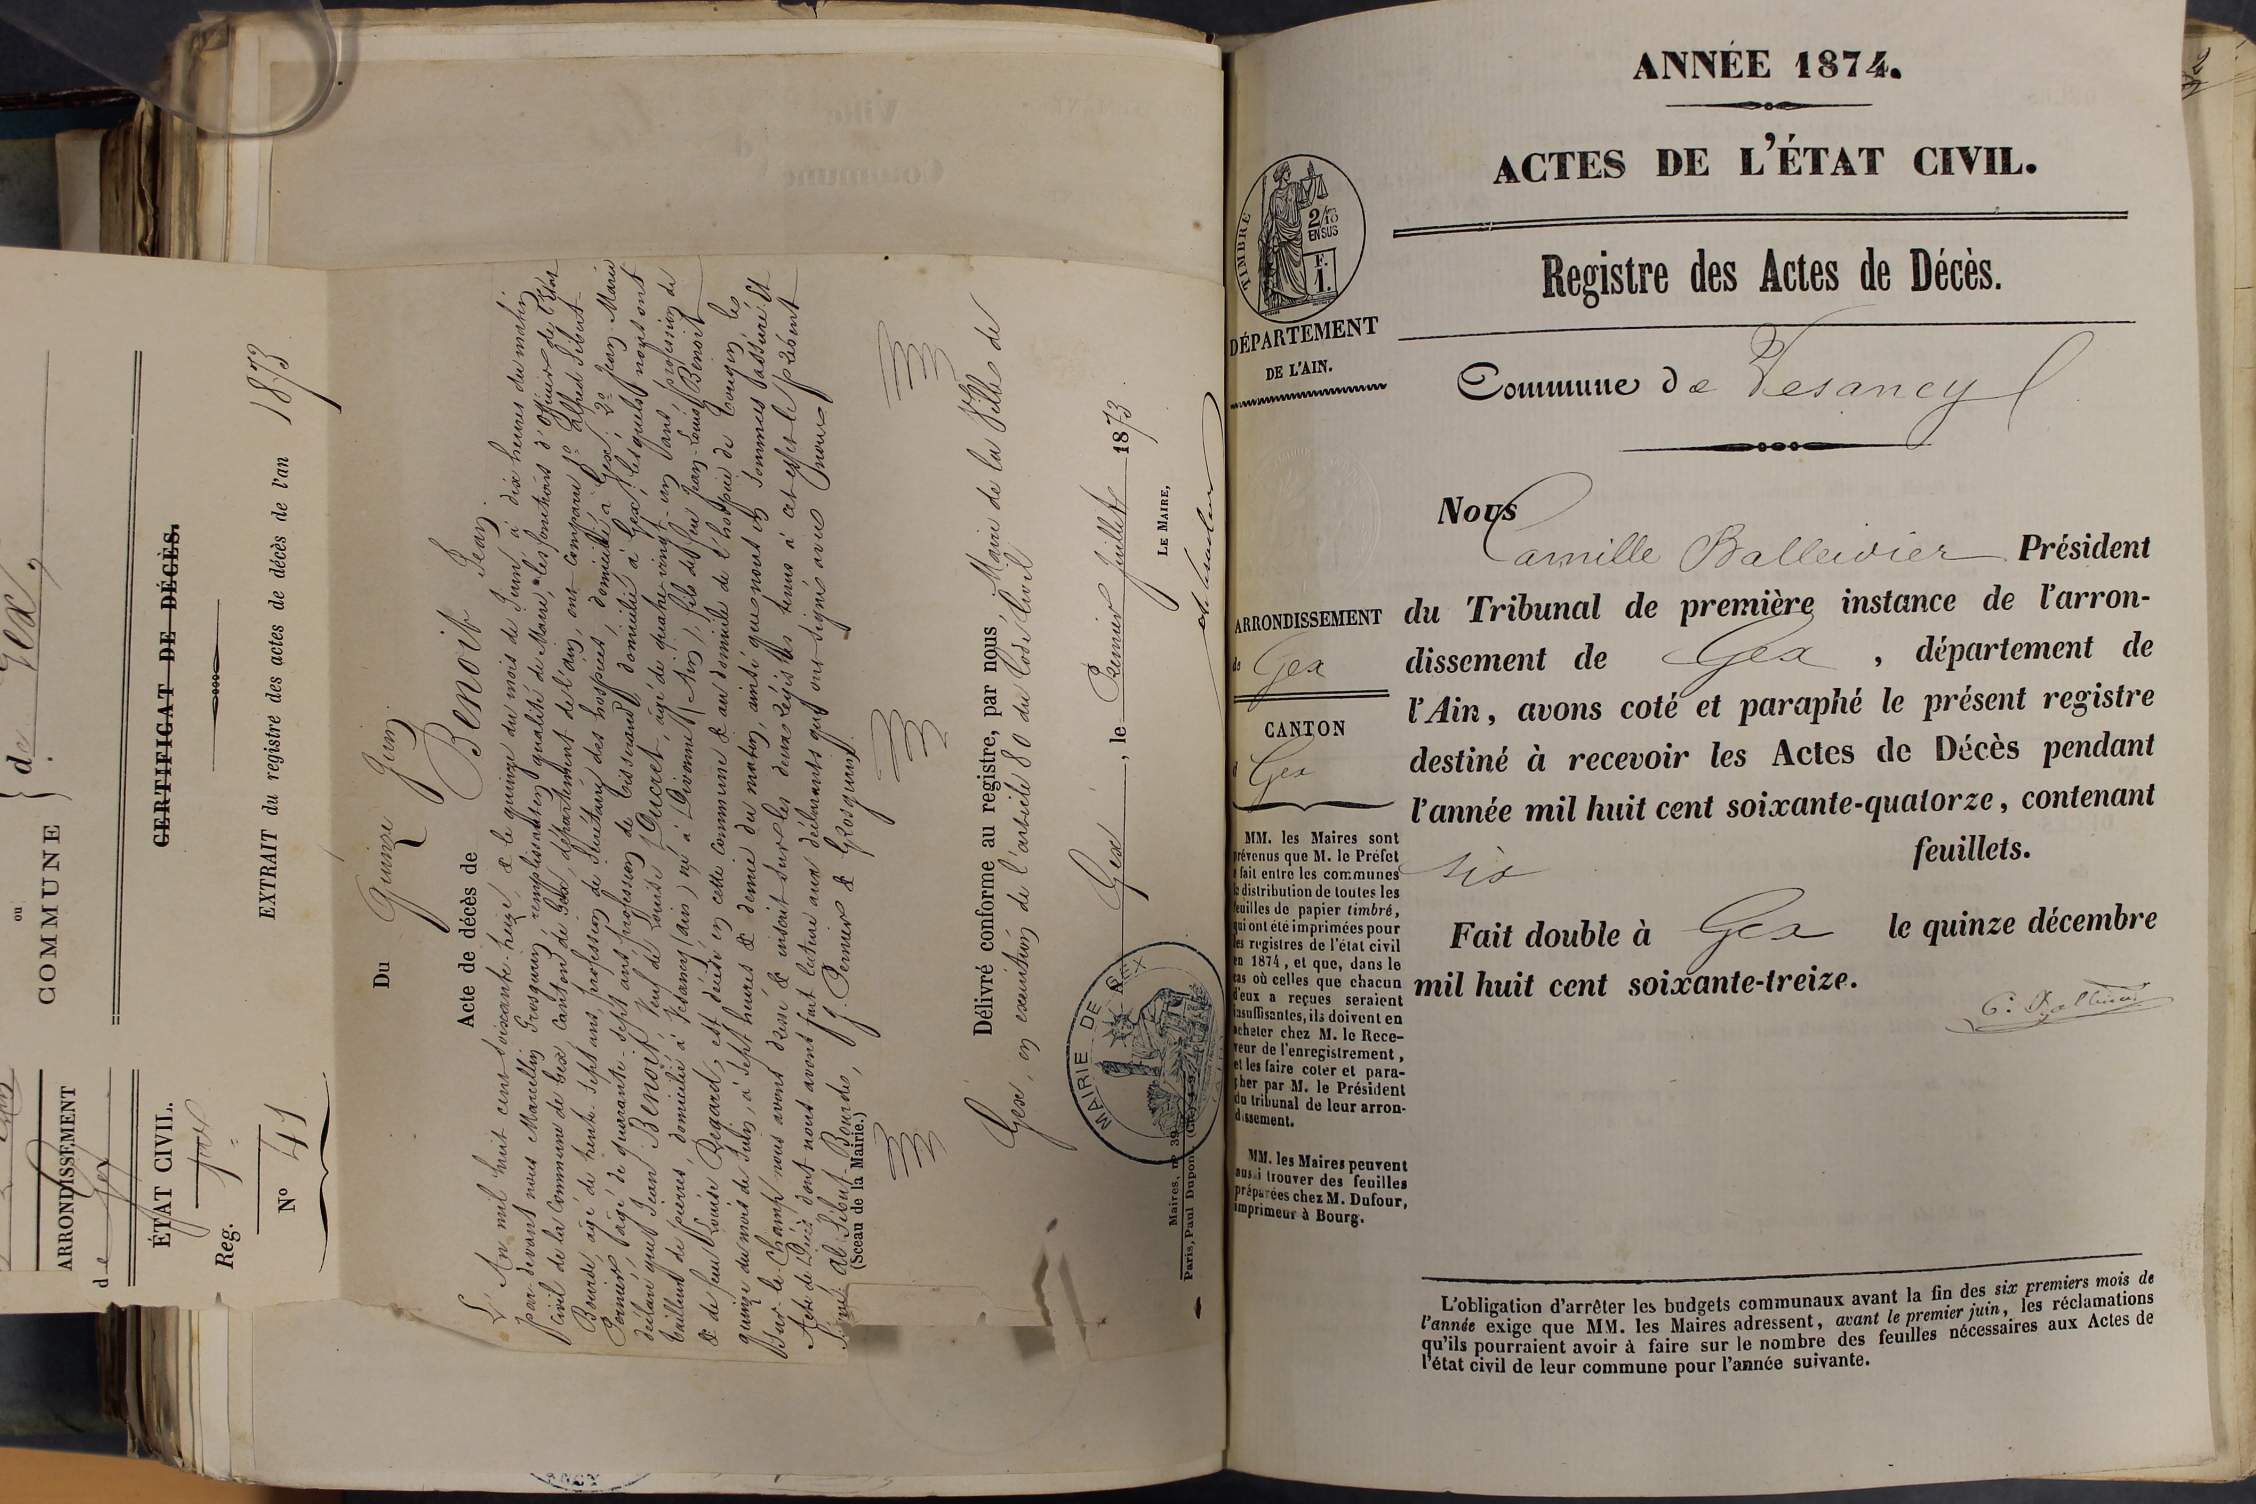 de Gex,
ou
COMMUNE
ARRONDISSEMENT
de Gex
ÉTAT CIVIL.
Reg.
N° 41
CERTIFICAT DE DÉCÈS.
EXTRAIT du registre des actes de décès de l'an 1873
Du Quinze Juin.
Acte de décès de Benoit Jean.
L'An mil huit cent soixante-treize, & le quinze du mois de Juin à dix heures du matin,
par devant nous Marcellin Grosgurin, remplissant en qualité de Maire, les fonctions d'Officier de l'Etat
Civil de la Commune de Gex, Canton de Gex, département de l'Ain, ont comparu 1° Alfred Sibut-
Bourde, âgé de trente-sept ans, profession de Secrétaire des hospices, domicilié à Gex; 2° Jean-Marie
Pernier, âgé de quarante-sept ans, profession de Tisserand, domicilié à Gex, lesquels nous ont
déclaré que Jean Benoit, Veuf de Louise Ducret, âgé de quatre-vingt-un ans, profession de
tailleur de pierres, domicilié à Vesancy (Ain) né à Divonne (Ain), fils de feu Jean-Louis Benoit
& de feu Louise Regard, est décédé en cette commune & au domicile de l'hospice de Tougin, le
quinze du mois de Juin, à sept heures & demie du matin, ainsi que nous en sommes assuré. Et
Sur-le-Champ nous avons dressé & inscrit sur les deux registres tenus à cet effet le présent
Acte de Décès dont nous avons fait lecture aux déclarants qui ont signé avec nous.
Signé: Al. Sibut-Bourde, J. Pernier & Grosgurin.
(Sceau de la Mairie.)
Délivré conforme au registre, par nous Maire de la Ville de
Gex, en exécution de l'article 80 du Code Civil.
Gex, le Premier Juillet 1873
LE MAIRE,
MAIRIE DE GEX
Paris, Paul Dupont
ANNÉE 1874.
ACTES DE L'ÉTAT CIVIL.
Registre des Actes de Décès.
Commune de Vesancy
TIMBRE
2/10
EN SUS
F.
1.
DÉPARTEMENT
DE L'AIN.
ARRONDISSEMENT
de Gex
CANTON
d Gex
MM. les Maires sont
prévenus que M. le Préfet
a fait entre les communes
la distribution de toutes les
feuilles de papier timbré,
qui ont été imprimées pour
les registres de l'état civil
en 1874, et que, dans le
cas où celles que chacun
d'eux a reçues seraient
insuffisantes, ils doivent en
acheter chez M. le Rece-
veur de l'enregistrement,
et les faire coter et para-
pher par M. le Président
du tribunal de leur arron-
dissement.
MM. les Maires peuvent
aussi trouver des feuilles
préparées chez M. Dufour,
imprimeur à Bourg.
Nous
Camille Balleidier Président
du Tribunal de première instance de l'arron-
dissement de Gex, département de
l'Ain, avons coté et paraphé le présent registre
destiné à recevoir les Actes de Décès pendant
l'année mil huit cent soixante-quatorze, contenant
six feuillets.
Fait double à Gex le quinze décembre
mil huit cent soixante-treize.
C. Balleidier
L'obligation d'arrêter les budgets communaux avant la fin des six premiers mois de
l'année exige que MM. les Maires adressent, avant le premier juin, les réclamations
qu'ils pourraient avoir à faire sur le nombre des feuilles nécessaires aux Actes de
l'état civil de leur commune pour l'année suivante.